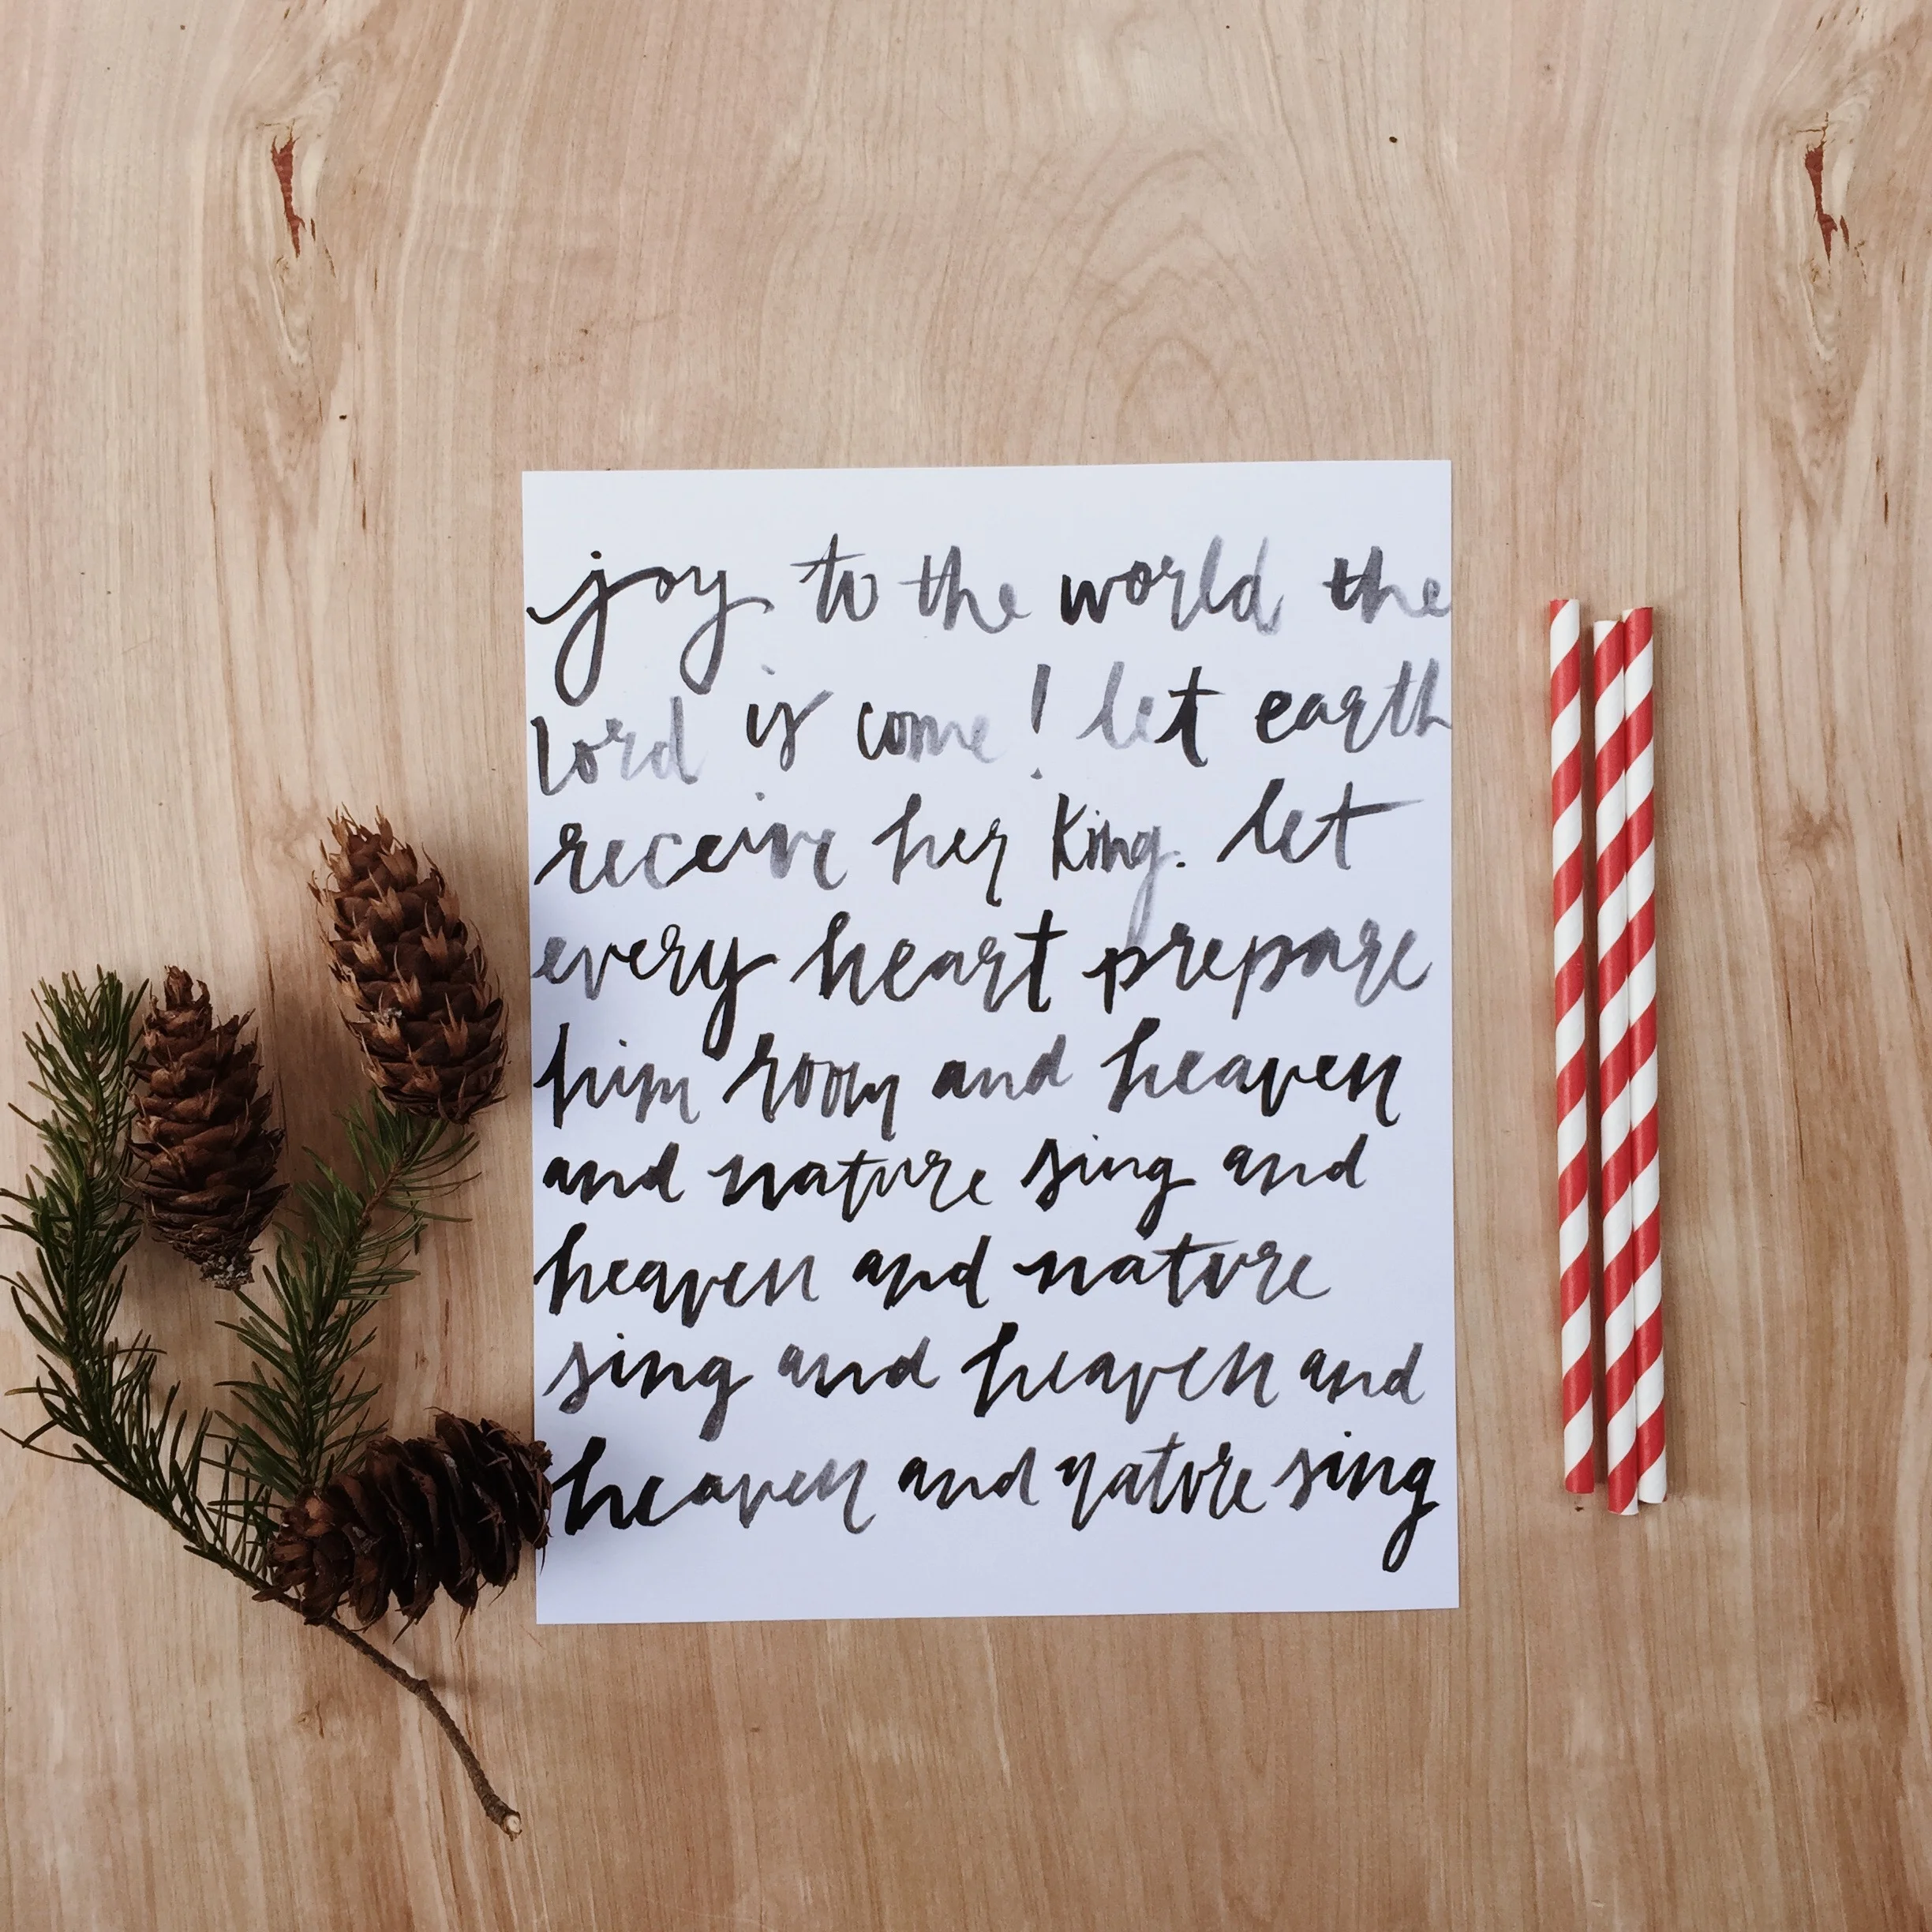 joy to the world the
lord is come! let earth
receive her King. let
every heart prepare
him room and heaven
and nature sing and
heaven and nature
sing and heaven and
heaven and nature sing